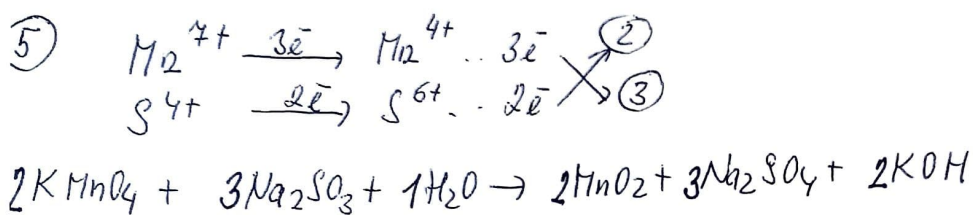 ⑤ Mn⁷⁺ —3ē→ Mn⁴⁺ .. 3ē ②
S⁴⁺ —2ē→ S⁶⁺ .. 2ē ③
2KMnO₄ + 3Na₂SO₃ + 1H₂O → 2MnO₂ + 3Na₂SO₄ + 2KOH